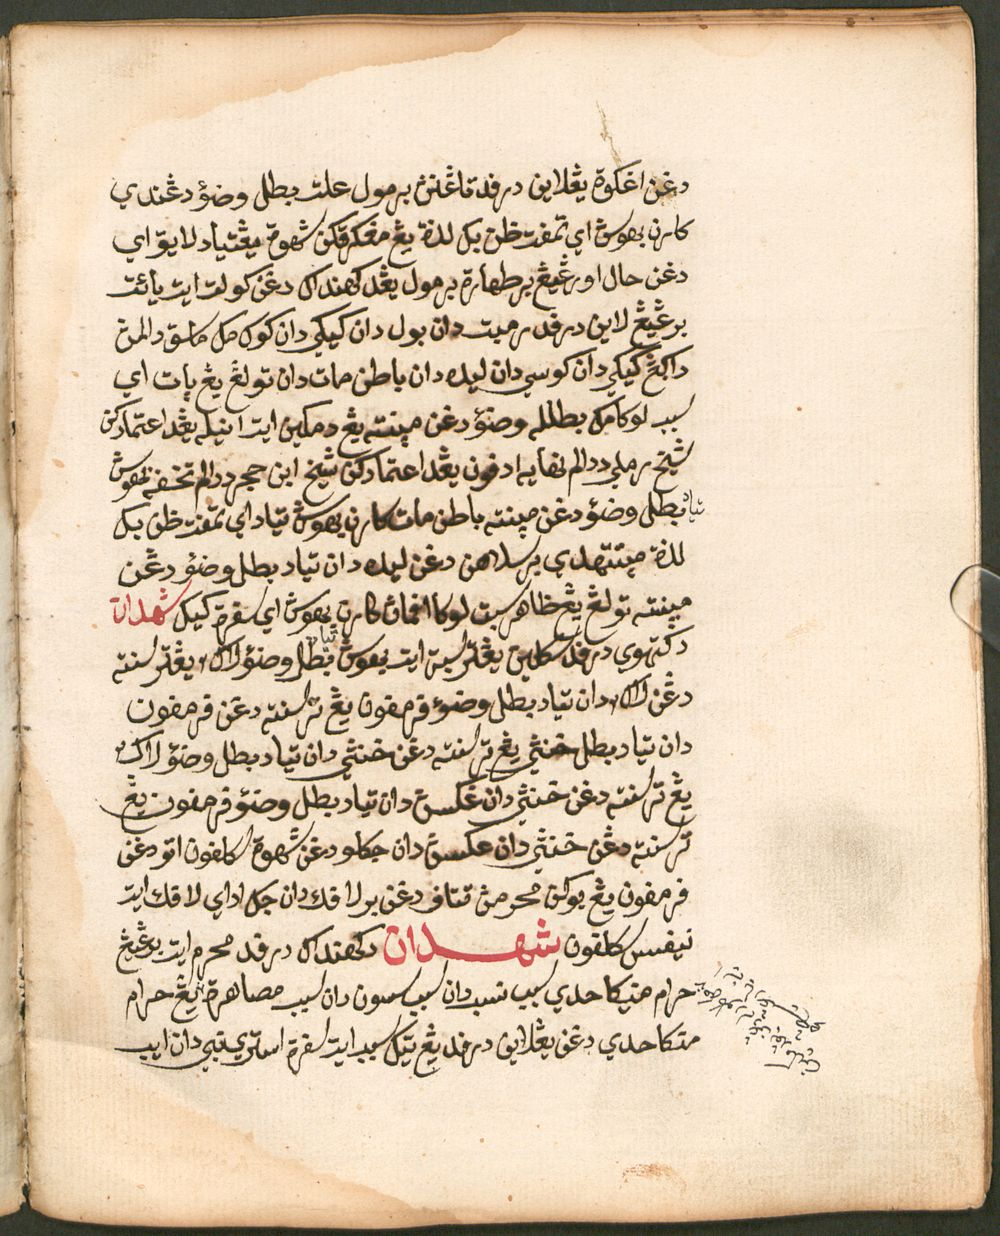 دڠن اڠكوة يڠلاين درفد تاڠنڽ برمول علت بطل وضؤ دڠندي
كارن بهوسڽ اي تمفت ظن بݢي لذة يڠ مڠݢرقكن شهوة يڠتياد لايق اي
دڠن حال اورڠيڠ برطهارة برمول يڠدكهنداك دڠن كولت ايت يائت
برڠيڠ لاين درفد رمبت دان بولو دان ݢيݢي دان كوكو مك ماسق دالمڽ
داݢڠ ݢيݢي دان كوسي دان ليده دان باطن مات دان تولڠ يڠ ڽات اي
سبب لوكا مك بطلله وضؤ دڠن مڽنته يڠ دمكين ايت اينيله يڠد اعتمادكن
شيخ رملي ددالم نهايه ادفون يڠد اعتمادكن شيخ ابن حجر ددالم تحفه بهوسڽ
تياد بطل وضؤ دڠن مڽنته باطن مات كارن بهوسڽ تياد اي تمفت ظن بݢي
لذة مڽنتهدي برسلاهن دڠن ليده دان تياد بطل وضؤ دڠن
مڽنته تولڠ يڠ ظاهر سبب لوكا افمان كارن بهوسڽ اي سفرة ݢيݢي شهدان
دكتهوي درفد سكلين يڠترسبة ايت بهوسڽ تياد بطل وضؤ لاكي٢ يڠترسنته
دڠن لاكي٢ دان تياد بطل وضوء فرمفون يڠ ترسنته دڠن فرمفون
دان تياد بطل خنثي يڠ ترسنته دڠن خنثي دان تياد بطل وضؤ لاكي٢
يڠ ترسنته دڠن خنثي دان عكسڽ دان تياد بطل وضؤ فرمفون يڠ
ترسنته دڠن خنثي دان عكسڽ دان جكلو دڠن شهوة سكلفون اتو دڠن
فرمفون يڠ بوكن محرمڽ تتاف دڠن برلافك دان جك اداي لافك ايت
نيفس سكلفون شهدان دكهنداك درفد محرم ايت برڠيڠ
حرام منيكاحدي سبب نسب دان سبب سسوان دان سبب مصاهرة يڠ حرام
منكاحدي دڠن يڠلاين درفد يڠ تيݢ سبب ايت سفرة استري نبي دان ايب